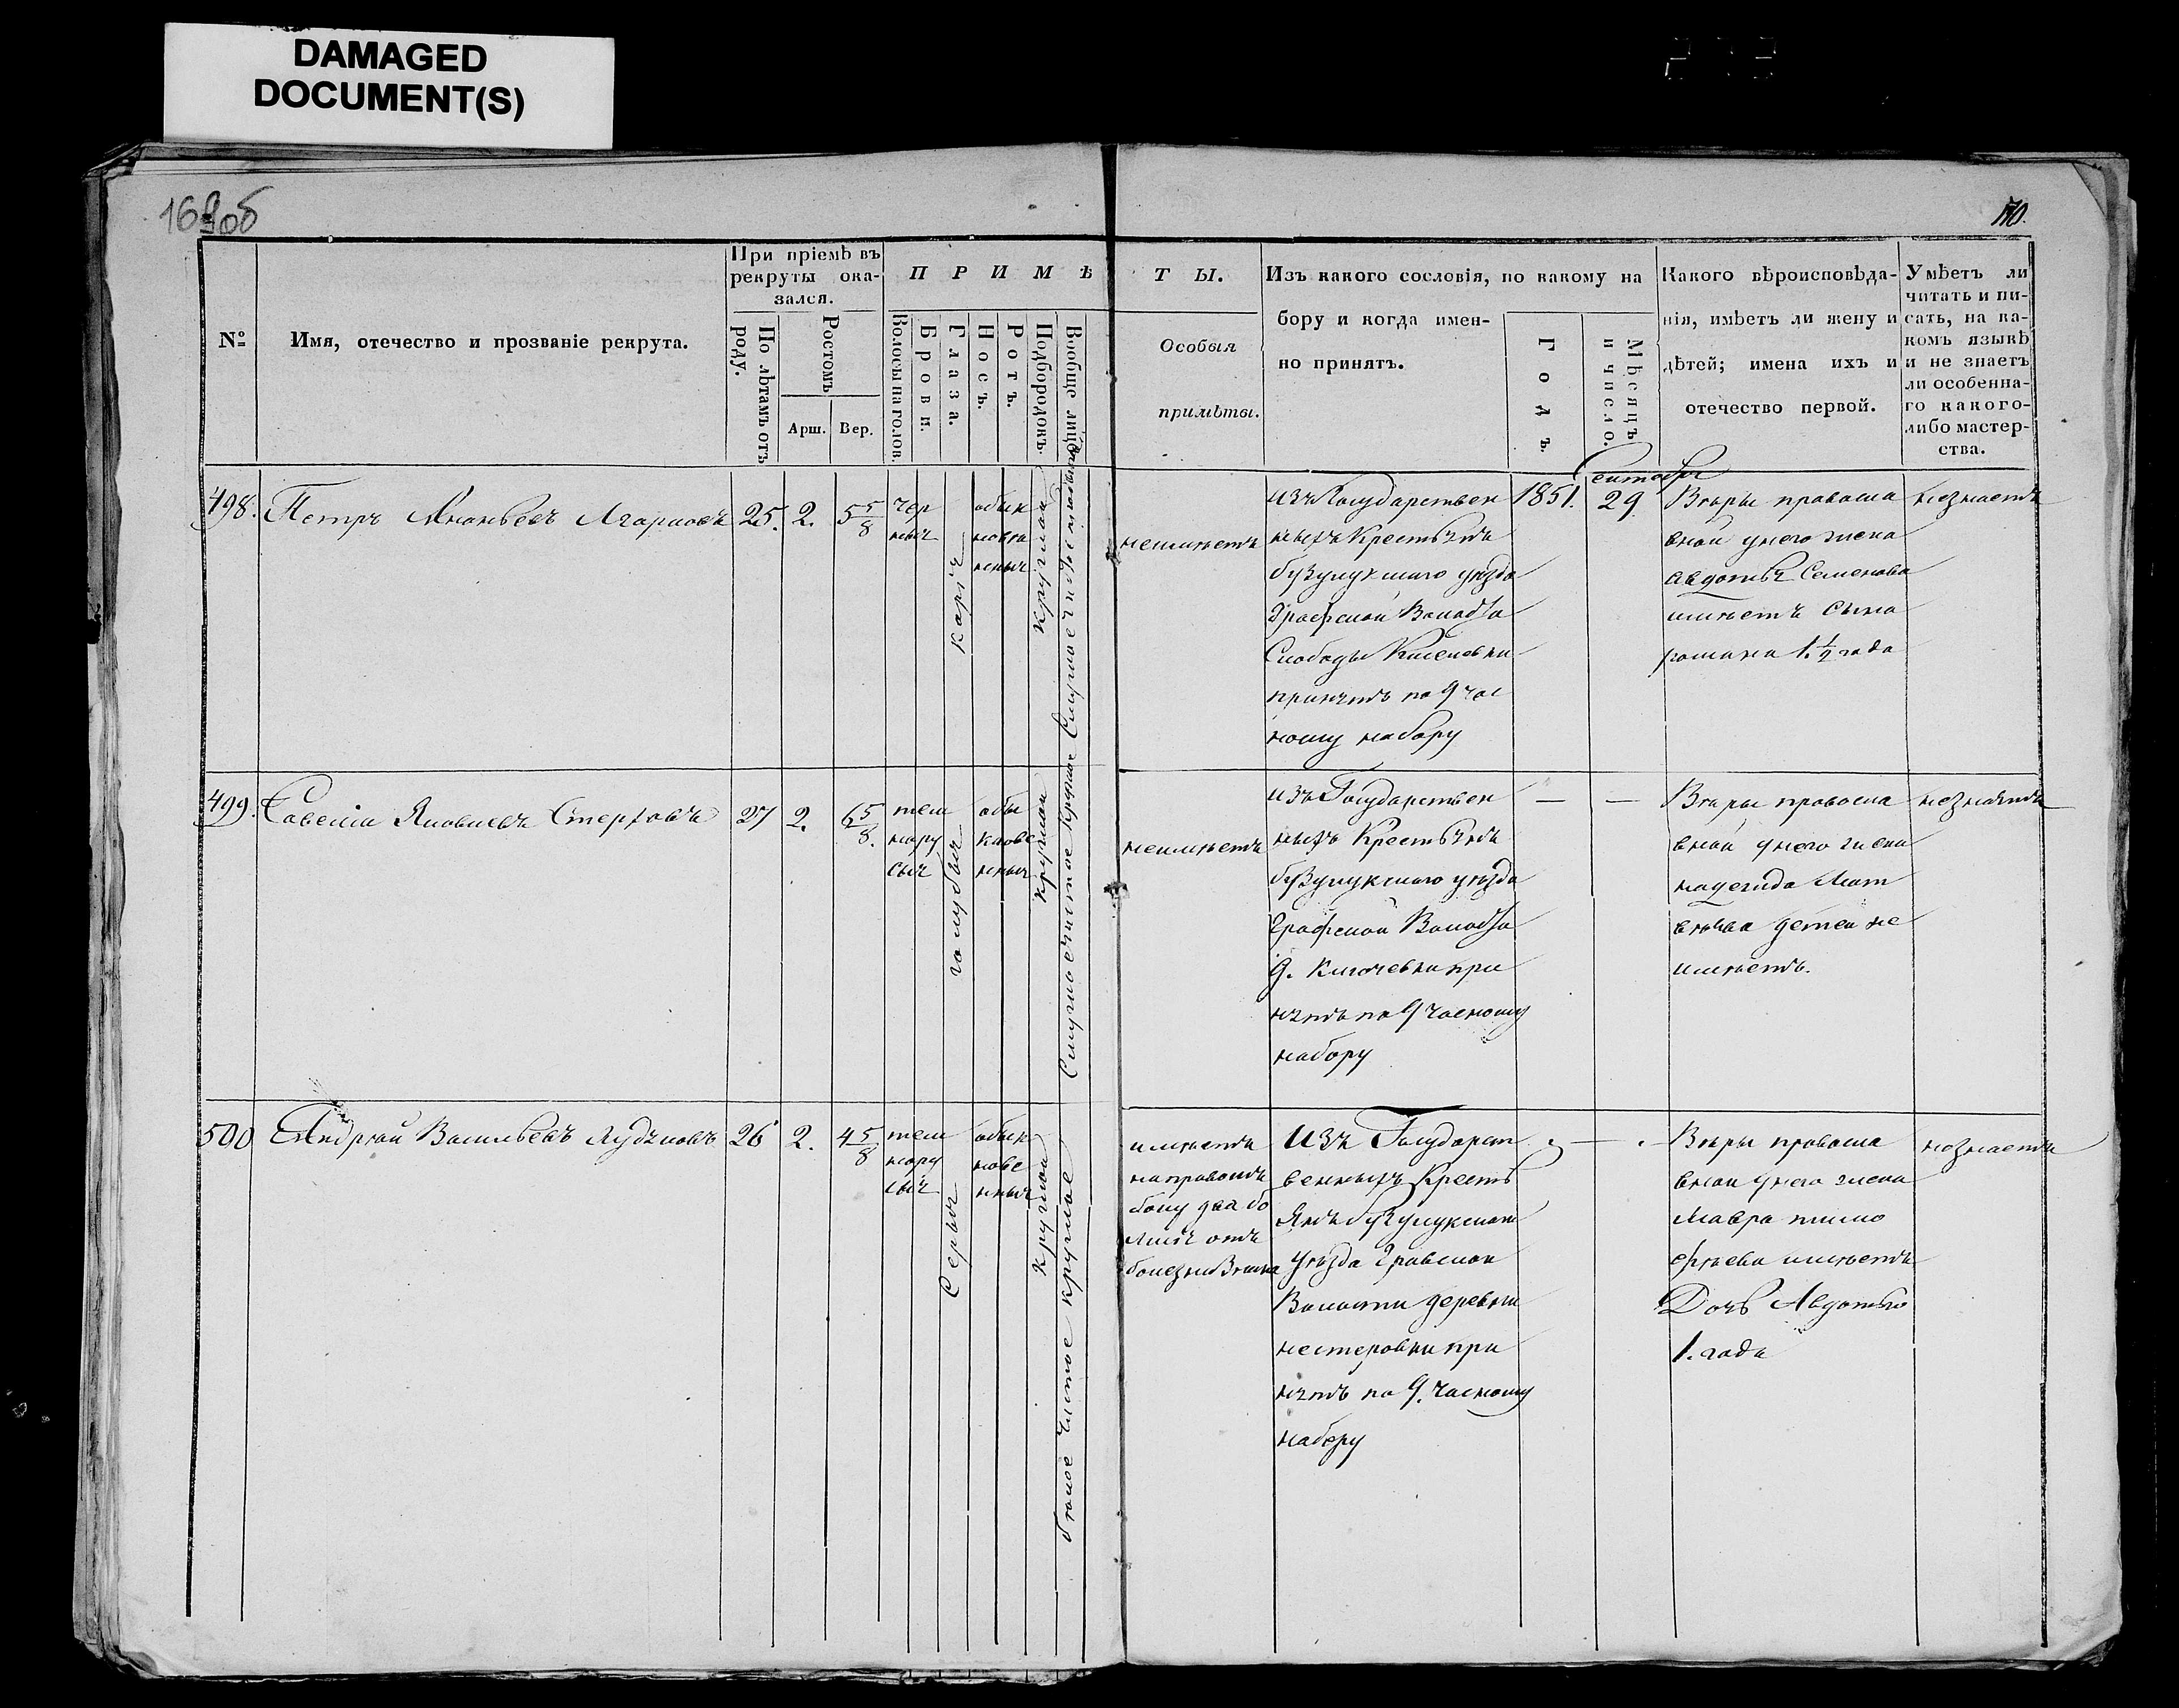 DAMAGED
DOCUMENT(S)
169об
170.
№
Имя, отечество и прозваніе рекрута.
При пріемѣ въ
рекруты ока-
зался.
По лѣтамъ отъ
роду.
Ростомъ
Арш.
Вер.
ПРИМѢ
Волосы на голов.
Брови.
Глаза.
Носъ.
Ротъ.
Подбородокъ.
Вообще лице
ТЫ.
Особыя
примѣты.
Изъ какого сословія, по какому на
бору и когда имен-
но принятъ.
Годъ.
Мѣсяцъ
и число.
Какого вѣроисповѣда-
нія, имѣетъ ли жену и
дѣтей; имена ихъ и
отечество первой.
Умѣетъ ли
читать и пи-
сать, на ка-
комъ языкѣ
и не знаетъ
ли особенна-
го какого-
либо мастер-
ства.
498.
Петръ
25.
2.
5 5/8
чер
ныя
каріе
обык
нове
нныя
круглой
неимѣетъ
изъ Государствен
ныхъ Крестьянъ
бузулукскаго уѣзда
Графской
Слободы
принятъ по 9 час
ному набору
1851.
Сентябр
29
Вѣры правосла
вной унего жена
авдотья Семенова
имѣетъ сына
романа 1. 1/2 года
незнаетъ
499.
Савелій Яковлевъ
27
2.
6 5/8.
тем
нору
сыя
голубыя
обы
кнове
нныя
круглой
неимѣетъ
изъ Государствен
ныхъ Крестьянъ
бузулукскаго уѣзда
Графской
д. Ключевки при
нятъ по 9 часному
набору
—
—
Вѣры правосла
вной унего жена
надежда Мат
вѣева детей не
имѣетъ.
незнаетъ
500
Андрей Васильевъ
26
2.
4 5/8
тем
нору
сыя
Серыя
обык
нове
нныя
круглой
белое чистое круглое
имѣетъ
на правомъ
боку два
отъ
болезни
Изъ Государст
венныхъ Кресть
Янъ бузулукскаго
уѣзда Графской
Волости деревни
нестеровки при
нятъ по 9. часному
набору
—
Вѣры правосла
вной унего жена
Мавра тимо
фѣева имѣетъ
Дочь Авдотью
1. года
незнаетъ